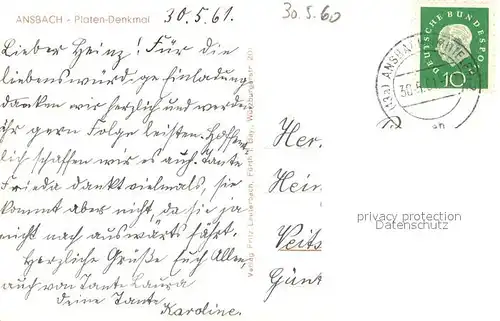 ANSBACH - Platen-Denkmal 30.5.61.
30.5.60
Lieber Heinz! Für die
liebenswürdige Einladung
danken wir herzlich und werden
ihr gern Folge leisten. Hoffent-
lich schaffen wir es auch. Tante
Frieda dankt vielmals, sie
kommt aber nicht, da sie ja
nicht nach auswärts fährt.
Herzliche Grüße Euch Allen,
auch von Tante Laura
Deine Tante
Karoline.
Verlag Fritz Lauterbach, Fürth i. Bay., Würzburgerstr.
DEUTSCHE BUNDESPOST
10
(13a) ANSBACH
Her.
Hein
Veits
Günt
privacy protection
Datenschutz